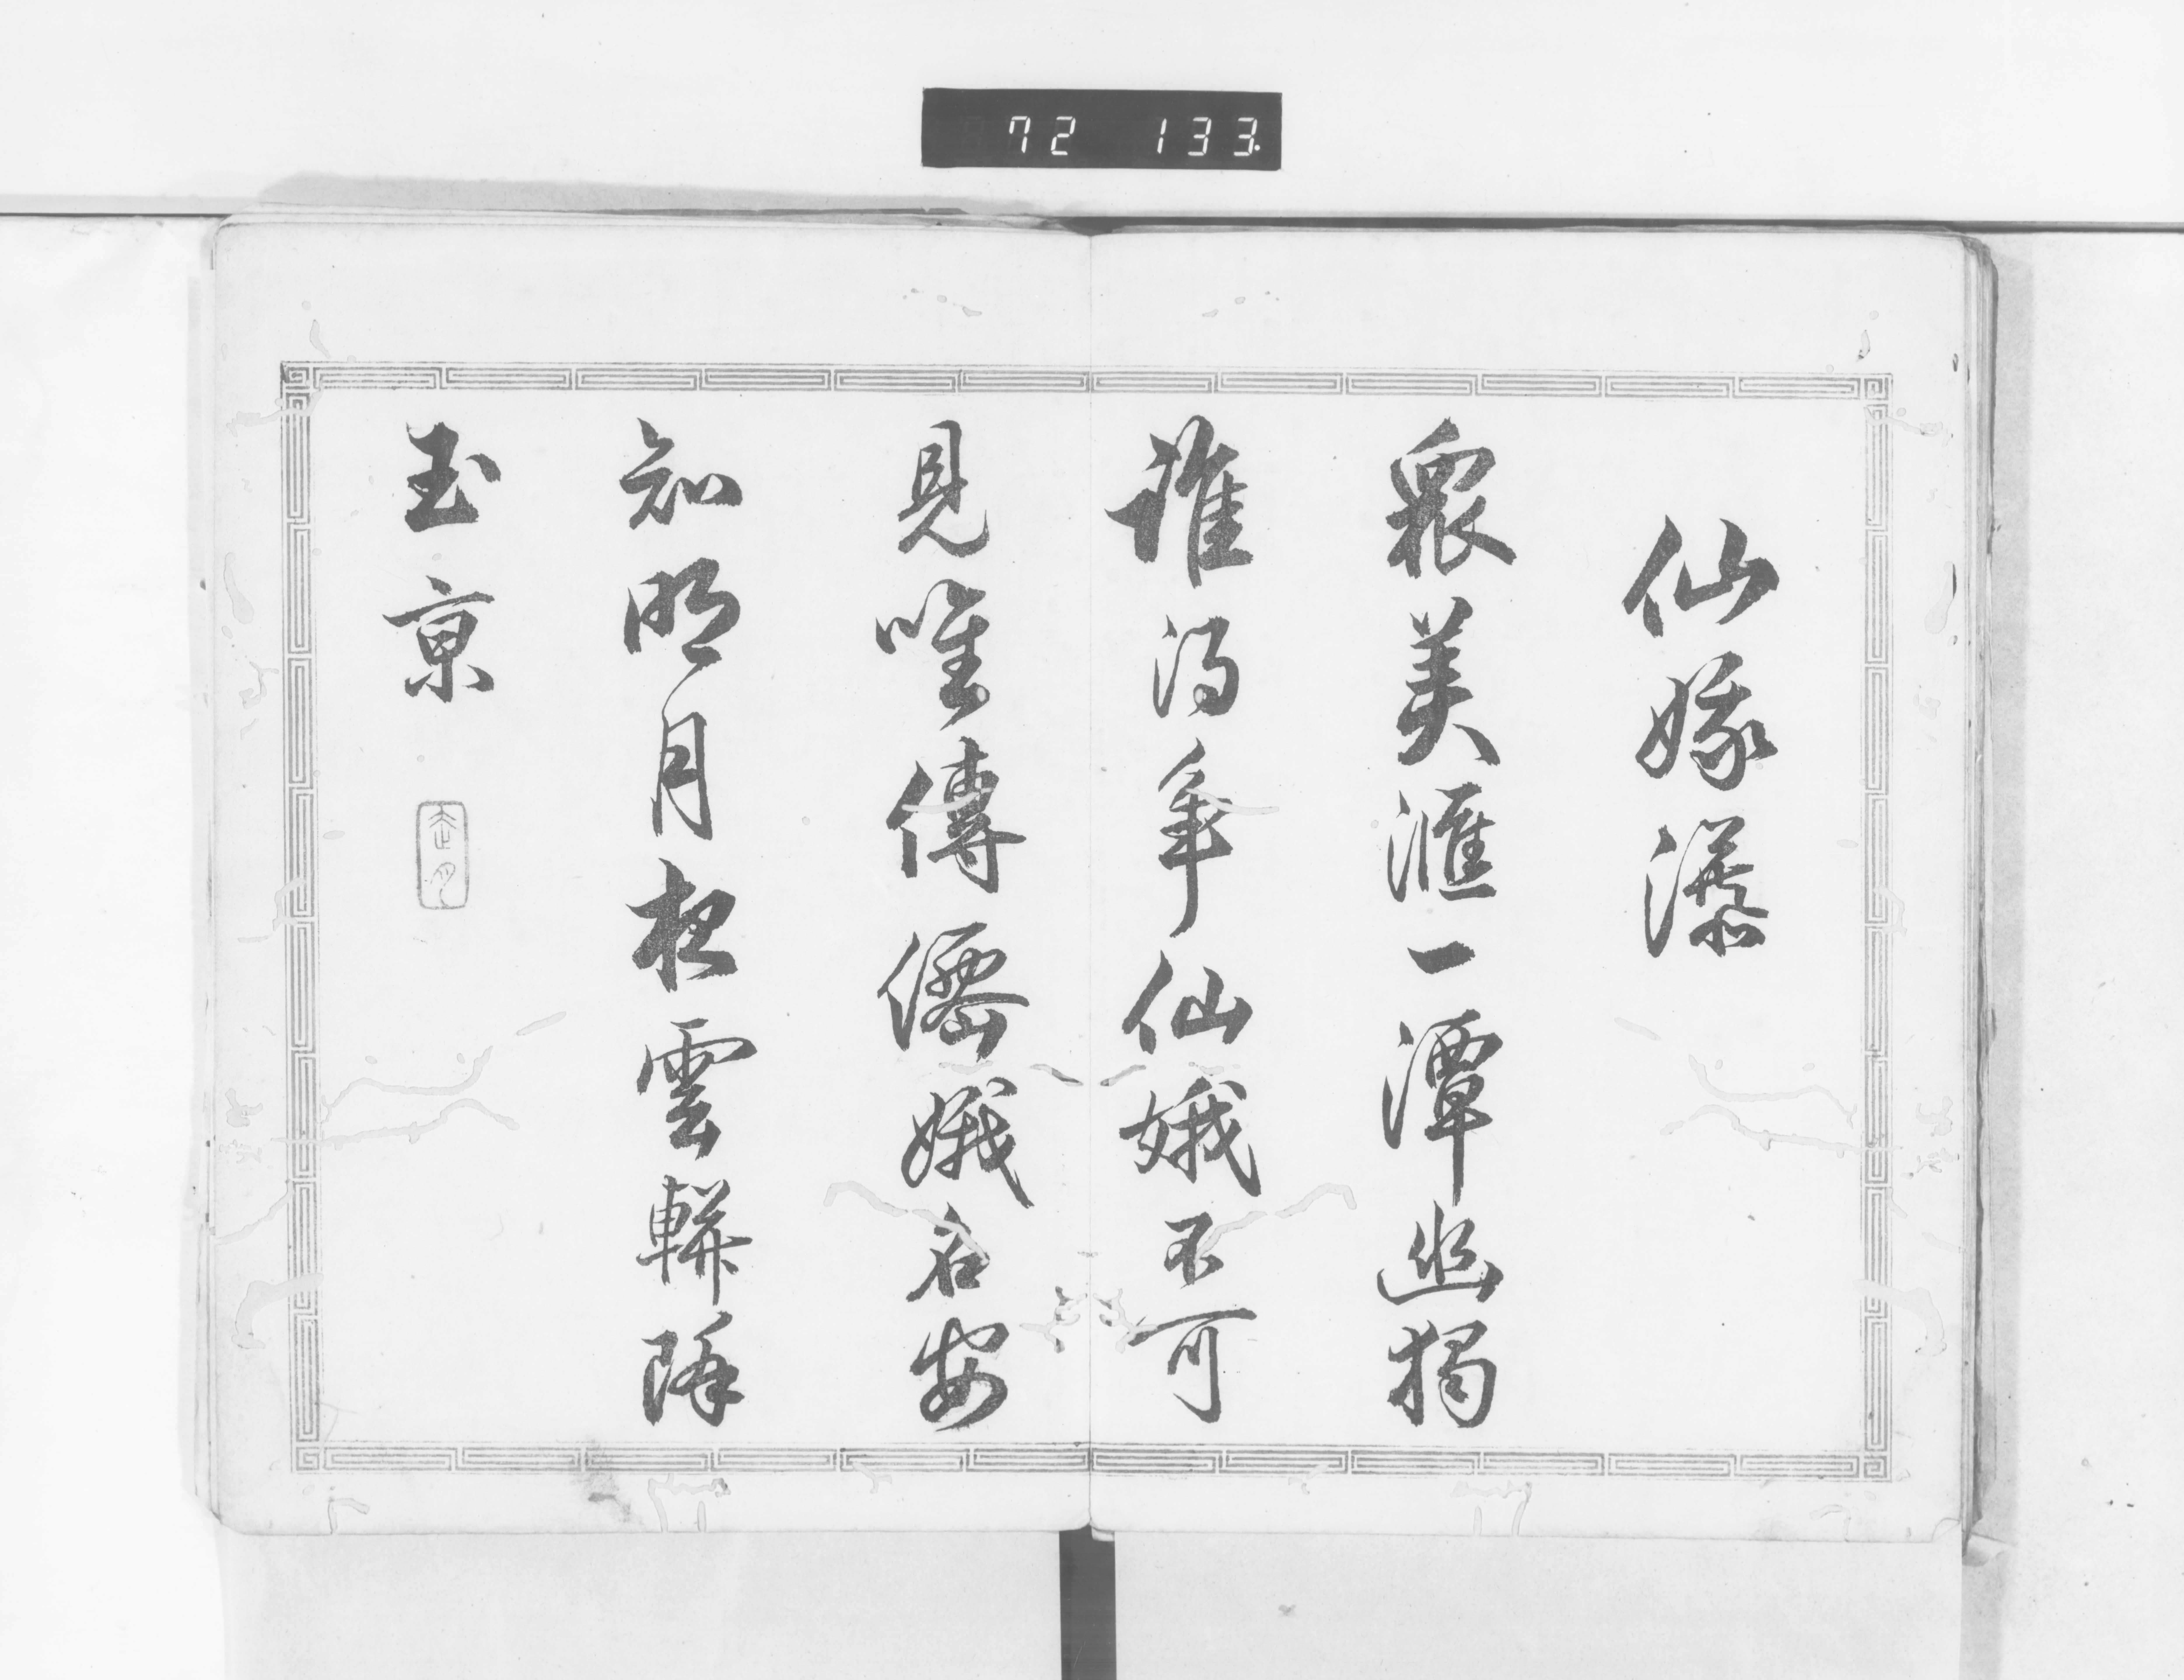 72 133.
仙娥瀑
衆美滙一潭幽獨
誰得爭仙娥不可
見唯傳僊娥名安
知明月夜雲軿降
玉京